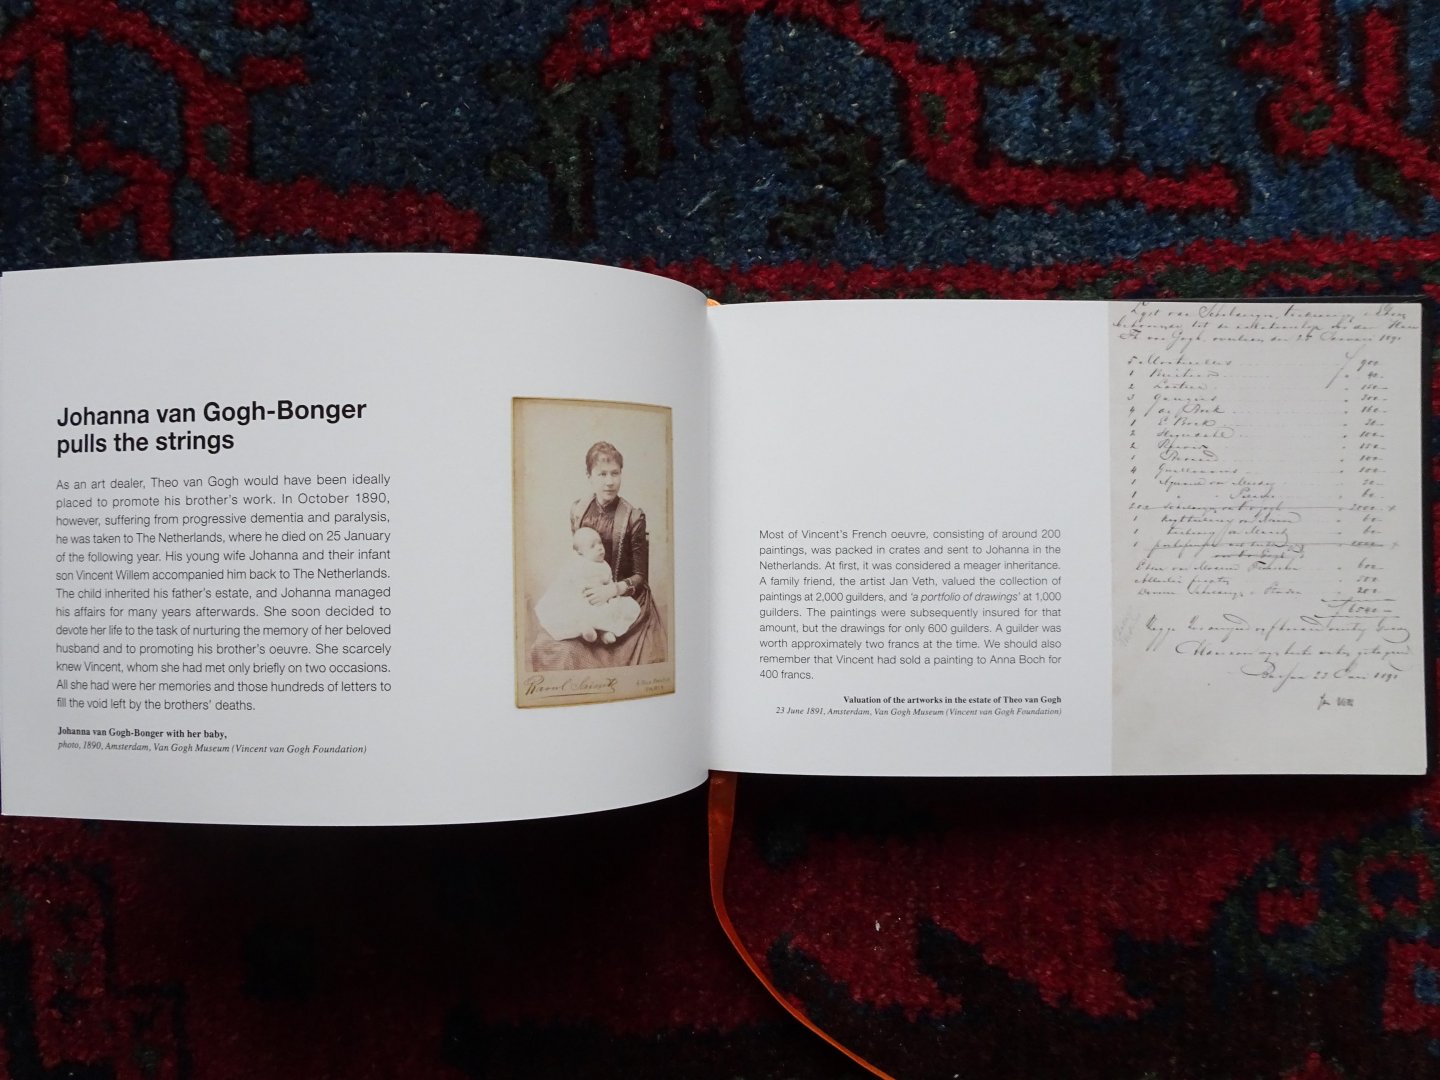 Johanna van Gogh-Bonger
pulls the strings
As an art dealer, Theo van Gogh would have been ideally
placed to promote his brother's work. In October 1890,
however, suffering from progressive dementia and paralysis,
he was taken to The Netherlands, where he died on 25 January
of the following year. His young wife Johanna and their infant
son Vincent Willem accompanied him back to The Netherlands.
The child inherited his father's estate, and Johanna managed
his affairs for many years afterwards. She soon decided to
devote her life to the task of nurturing the memory of her beloved
husband and to promoting his brother's oeuvre. She scarcely
knew Vincent, whom she had met only briefly on two occasions.
All she had were her memories and those hundreds of letters to
fill the void left by the brothers' deaths.
Johanna van Gogh-Bonger with her baby,
photo, 1890, Amsterdam, Van Gogh Museum (Vincent van Gogh Foundation)
Raoul
PARIS
Most of Vincent's French oeuvre, consisting of around 200
paintings, was packed in crates and sent to Johanna in the
Netherlands. At first, it was considered a meager inheritance.
A family friend, the artist Jan Veth, valued the collection of
paintings at 2,000 guilders, and 'a portfolio of drawings' at 1,000
guilders. The paintings were subsequently insured for that
amount, but the drawings for only 600 guilders. A guilder was
worth approximately two francs at the time. We should also
remember that Vincent had sold a painting to Anna Boch for
400 francs.
Valuation of the artworks in the estate of Theo van Gogh
23 June 1891, Amsterdam, Van Gogh Museum (Vincent van Gogh Foundation)
van Gogh
5 900
1 40
2
3 Gauguin 300
4 de Bock 160
1 E Bock
2 100
2 150
1 100
4 Guillaumin 100
1
1 60
1 60
1 60
600
200
6540